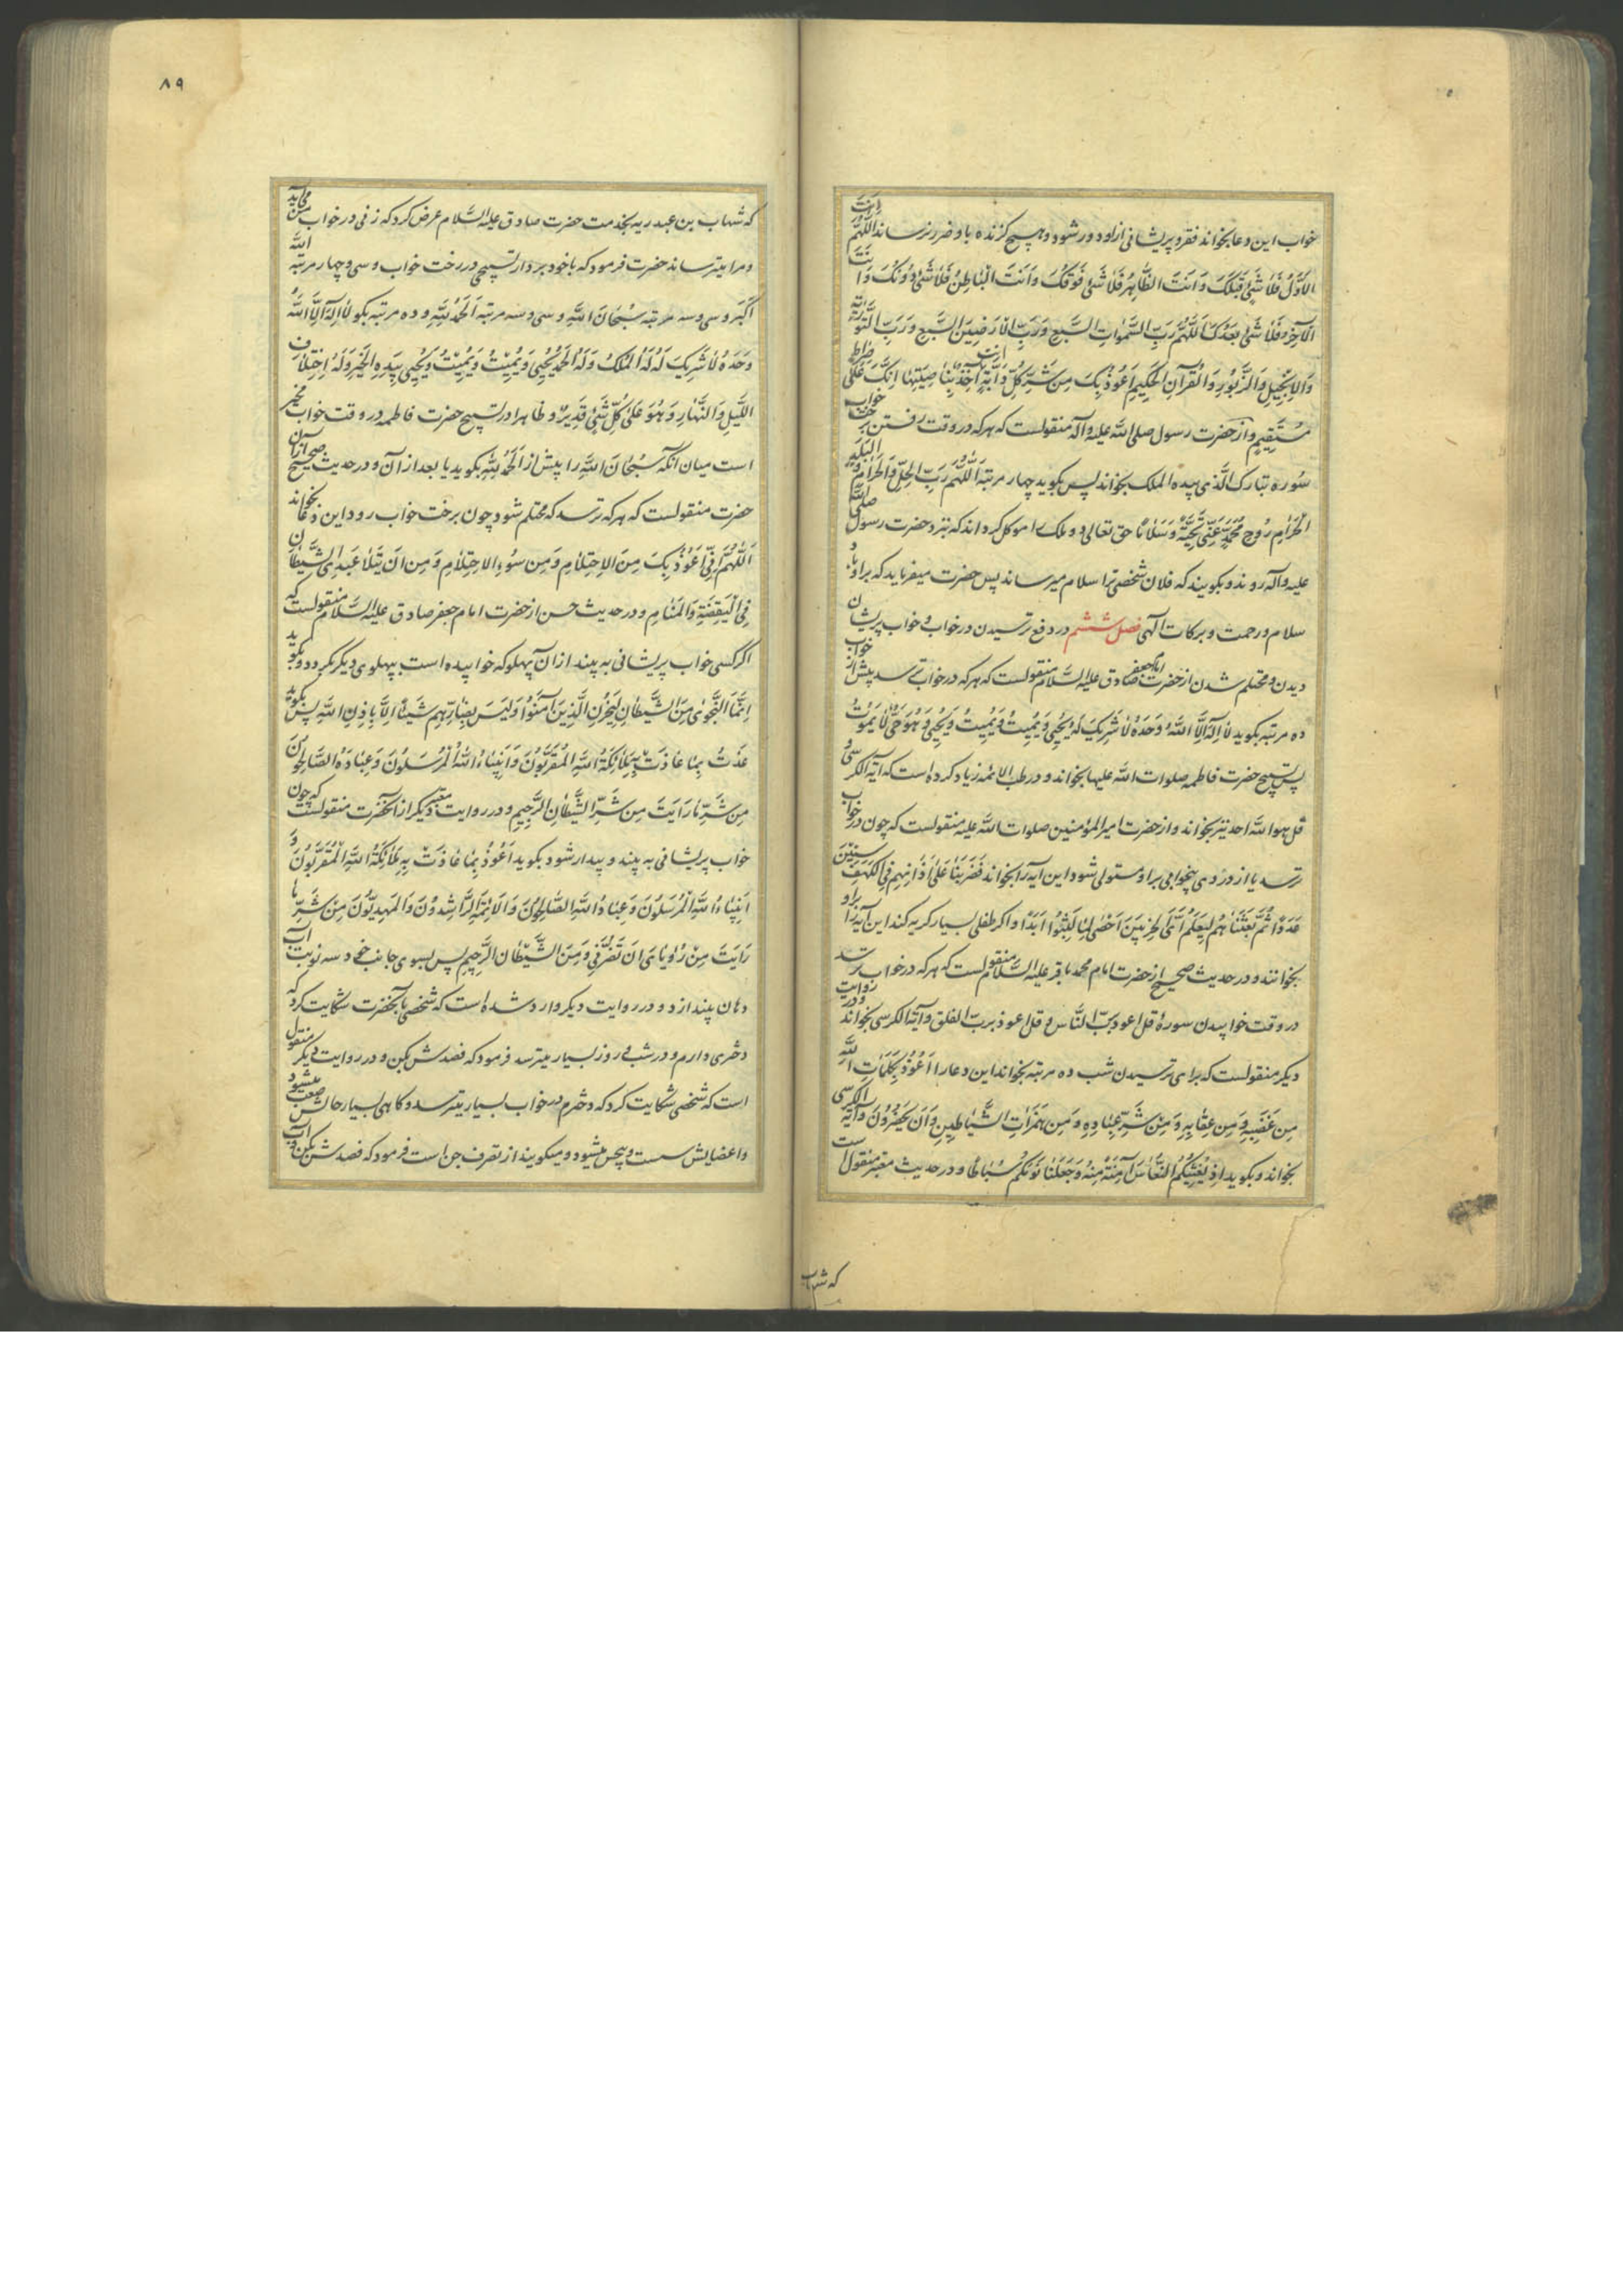 خواب این دعا بخواند فقر و پریشانی از او دور شود و هیچ گزنده باو ضرر نرساند اَللّٰهُمَّ اَنْتَ
الاَوَّلُ فَلاٰ شَیْءَ قَبْلَکَ وَ اَنْتَ الظّٰاهِرُ فَلاٰ شَیْءَ فَوْقَکَ وَ اَنْتَ الْبٰاطِنُ فَلاٰ شَیْءَ دُونَکَ وَ اَنْتَ
الآخِرُ فَلاٰ شَیْءَ بَعْدَکَ اَللّٰهُمَّ رَبَّ السَّمٰوٰاتِ السَّبْعِ وَ رَبَّ الاَرَضِینَ السَّبْعِ وَ رَبَّ التَّوْرٰیةِ
وَ الاِنْجِیلِ وَ الزَّبُورِ وَ الْقُرْآنِ الْحَکِیمِ اَعُوذُ بِکَ مِنْ شَرِّ کُلِّ دٰابَّةٍ اَنْتَ آخِذٌ بِنٰاصِیَتِهٰا اِنَّکَ عَلٰی صِرٰاطٍ
مُسْتَقِیمٍ و از حضرت رسول صلی الله علیه و آله منقولست که هر که در وقت رفتن برخت خواب
سُوره تبارک الّذی بیده الملک بخواند پس بگوید چهار مرتبه اَللّٰهُمَّ رَبَّ الْحِلِّ وَ الْحَرٰامِ وَ الْبَلَدِ
الْحَرٰامِ رُوحَ مُحَمَّدٍ عَنِّی تَحِیَّةً وَ سَلاٰماً حق تعالی دو ملک را موکل گرداند که نزد حضرت رسول صلی الله
علیه و آله روند و بگویند که فلان شخص ترا سلام میرساند پس حضرت میفرماید که بر او باد
سلام و رحمت و برکات الٰهی فصل ششم در دفع ترسیدن در خواب و خواب پریشان
دیدن و محتلم شدن از حضرت امام جعفر صادق علیه السَّلام منقولست که هر که در خواب ترسد پیش از خواب
ده مرتبه بگوید لاٰ اِلٰهَ اِلاَّ اللّٰهُ وَحْدَهُ لاٰ شَرِیکَ لَهُ یُحْیِی وَ یُمِیتُ وَ یُمِیتُ وَ یُحْیِی وَ هُوَ حَیٌّ لاٰ یَمُوتُ
پس تسبیح حضرت فاطمه صلوات الله علیها بخواند و در طب الائمه زیاد کرده است که آیة الکرسی و
قل هو الله احد نیز بخواند و از حضرت امیرالمؤمنین صلوات الله علیه منقولست که چون در خواب
ترسد یا از دردی بیخوابی بر او مستولی شود این آیه را بخواند فَضَرَبْنٰا عَلٰی آذٰانِهِمْ فِی الْکَهْفِ سِنِینَ
عَدَداً ثُمَّ بَعَثْنٰاهُمْ لِیَعْلَمَ اَیُّ الْحِزْبَیْنِ اَحْصٰی لِمٰا لَبِثُوا اَبَدًا و اگر طفلی بسیار گریه کند این آیه را بر او
بخوانند و در حدیث صحیح از حضرت امام محمد باقر علیه السَّلام منقولست که هر که در خواب ترسد
در وقت خوابیدن سورهٔ قل اعوذ بربّ النَّاس و قل اعوذ بربّ الفلق و آیة الکرسی بخواند و در روایت
دیگر منقولست که برای ترسیدن شب ده مرتبه بخواند این دعا را اَعُوذُ بِکَلِمٰاتِ اللّٰهِ
مِنْ غَضَبِهِ وَ مِنْ عِقٰابِهِ وَ مِنْ شَرِّ عِبٰادِهِ وَ مِنْ هَمَزٰاتِ الشَّیٰاطِینِ وَ اَنْ یَحْضُرُونَ و آیة الکرسی
بخواند و بگوید اِذْ یُغَشِّیکُمُ النُّعٰاسَ آمَنَةً مِنْهُ وَ جَعَلْنٰا نَوْمَکُمْ سُبٰاتاً و در حدیث معتبر منقول است
که شهاب
٨٩
که شهاب بن عبد ربه بخدمت حضرت صادق علیه السَّلام عرض کرد که زنی در خواب من می‌آید
و مرا میترساند حضرت فرمود که با خود بردار تسبیحی در رخت خواب و سی و چهار مرتبه اللّٰه
اَکْبَر و سی و سه مرتبه سُبْحٰانَ اللّٰهِ و سی و سه مرتبه اَلْحَمْدُ لِلّٰهِ و ده مرتبه بگو لاٰ اِلٰهَ اِلاَّ اللّٰهُ
وَحْدَهُ لاٰ شَرِیکَ لَهُ لَهُ الْمُلْکُ وَ لَهُ الْحَمْدُ یُحْیِی وَ یُمِیْتُ وَ یُمِیْتُ وَ یُحْیِی بِیَدِهِ الْخَیْرُ وَ لَهُ اِخْتِلاٰفُ
اللَّیْلِ وَ النَّهٰارِ وَ هُوَ عَلیٰ کُلِّ شَیْءٍ قَدِیرٌ و ظاهرا در تسبیح حضرت فاطمه در وقت خواب مخیر
است میان آنکه سُبْحٰانَ اللّٰهِ را پیش از اَلْحَمْدُ لِلّٰهِ بگوید یا بعد از آن و در حدیث صحیح از آن
حضرت منقولست که هر که ترسد که محتلم شود چون برخت خواب رود این دعا بخواند
اَللّٰهُمَّ اِنِّی اَعُوْذُ بِکَ مِنَ الاِحْتِلاٰمِ وَ مِنْ سُوءِ الاِحْتِلاٰمِ وَ مِنْ اَنْ یَتَلاٰعَبَ بِیَ الشَّیْطٰانُ
فِی الْیَقَظَةِ وَ الْمَنٰامِ و در حدیث حسن از حضرت امام جعفر صادق علیه السَّلام منقولست که
اگر کسی خواب پریشانی به بیند از آن پهلو که خوابیده است بپهلوی دیگر بگردد و بگوید
اِنَّمَا النَّجْوٰی مِنَ الشَّیْطٰانِ لِیَحْزُنَ الَّذِینَ آمَنُوا وَ لَیْسَ بِضٰارِّهِمْ شَیْئاً اِلاَّ بِاِذْنِ اللّٰهِ پس بگوید
عُذْتُ بِمٰا عٰاذَتْ بِهِ مَلاٰئِکَةُ اللّٰهِ الْمُقَرَّبُونَ وَ اَنْبِیٰاءُ اللّٰهِ الْمُرْسَلُونَ وَ عِبٰادُهُ الصّٰالِحُونَ
مِنْ شَرِّ مٰا رَاَیْتُ مِنْ شَرِّ الشَّیْطٰانِ الرَّجِیمِ و در روایت معتبر دیگر از آنحضرت منقولست که چون
خواب پریشانی به بیند و بیدار شود بگوید اَعُوْذُ بِمٰا عٰاذَتْ بِهِ مَلاٰئِکَةُ اللّٰهِ الْمُقَرَّبُونَ وَ
اَنْبِیٰاءُ اللّٰهِ الْمُرْسَلُونَ وَ عِبٰادُ اللّٰهِ الصّٰالِحُونَ وَ الاَئِمَّةُ الرّٰاشِدُونَ وَ الْمَهْدِیُّونَ مِنْ شَرِّ مٰا
رَاَیْتُ مِنْ رُؤْیٰایَ اَنْ تَضُرَّنِی وَ مِنَ الشَّیْطٰانِ الرَّجِیمِ پس بسوی جانب چپ سه نوبت آب
دهان بیندازد و در روایت دیگر وارد شده است که شخصی بآنحضرت شکایت کرد که
دختری دارم و در شب و روز بسیار میترسد فرمود که فصدش بکن و در روایت دیگر منقول
است که شخصی شکایت کرد که دخترم در خواب بسیار میترسد و گاهی بسیار حالش صعب میشود
و اعضایش سست و بیحس میشود و میگویند از تصرف جن است فرمود که فصدش بکن و آب